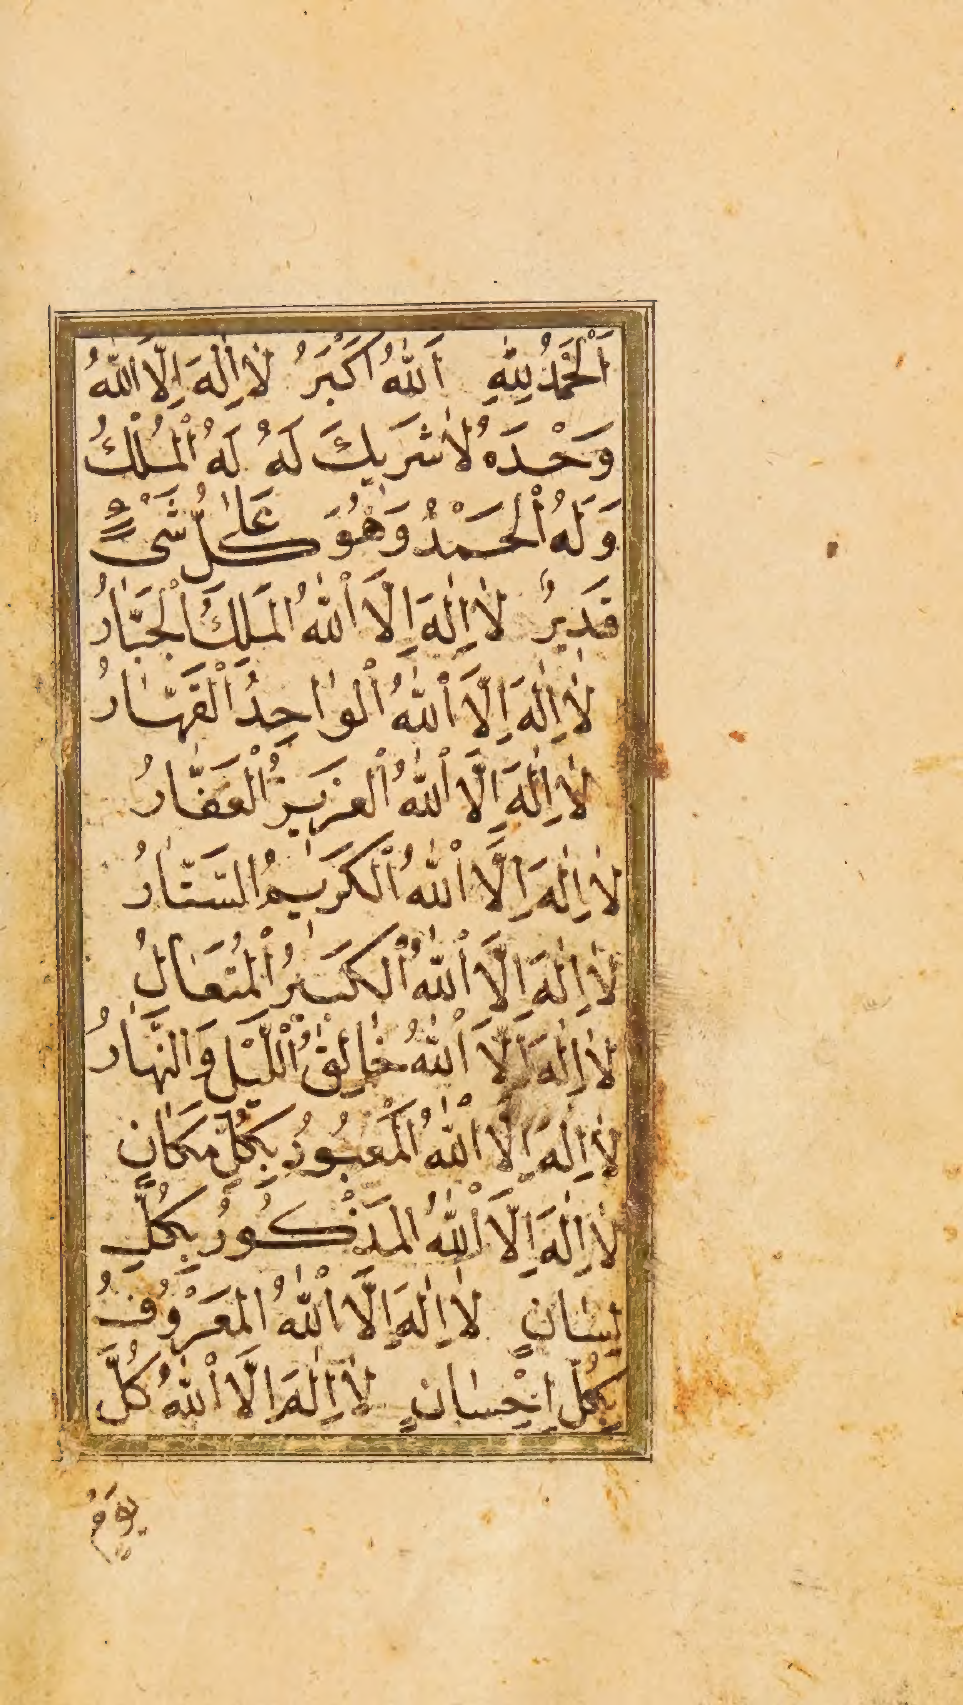 اَلْحَمْدُ لِلّٰهِ اَللّٰهُ اَكْبَرُ لَا اِلٰهَ اِلَّا اللّٰهُ
وَحْدَهُ لَا شَرِيكَ لَهُ لَهُ الْمُلْكُ
وَلَهُ الْحَمْدُ وَهُوَ عَلٰى كُلِّ شَيْءٍ
قَدِيرٌ لَا اِلٰهَ اِلَّا اللّٰهُ الْمَلِكُ الْجَبَّارُ
لَا اِلٰهَ اِلَّا اللّٰهُ الْوَاحِدُ الْقَهَّارُ
لَا اِلٰهَ اِلَّا اللّٰهُ الْعَزِيزُ الْغَفَّارُ
لَا اِلٰهَ اِلَّا اللّٰهُ الْكَرِيمُ السَّتَّارُ
لَا اِلٰهَ اِلَّا اللّٰهُ الْكَبِيرُ الْمُتَعَالِ
لَا اِلٰهَ اِلَّا اللّٰهُ خَالِقُ اللَّيْلِ وَالنَّهَارِ
لَا اِلٰهَ اِلَّا اللّٰهُ الْمَعْبُودُ بِكُلِّ مَكَانٍ
لَا اِلٰهَ اِلَّا اللّٰهُ الْمَذْكُورُ بِكُلِّ
لِسَانٍ لَا اِلٰهَ اِلَّا اللّٰهُ الْمَعْرُوفُ
بِكُلِّ اِحْسَانٍ لَا اِلٰهَ اِلَّا اللّٰهُ كُلَّ
يَوْمٍ